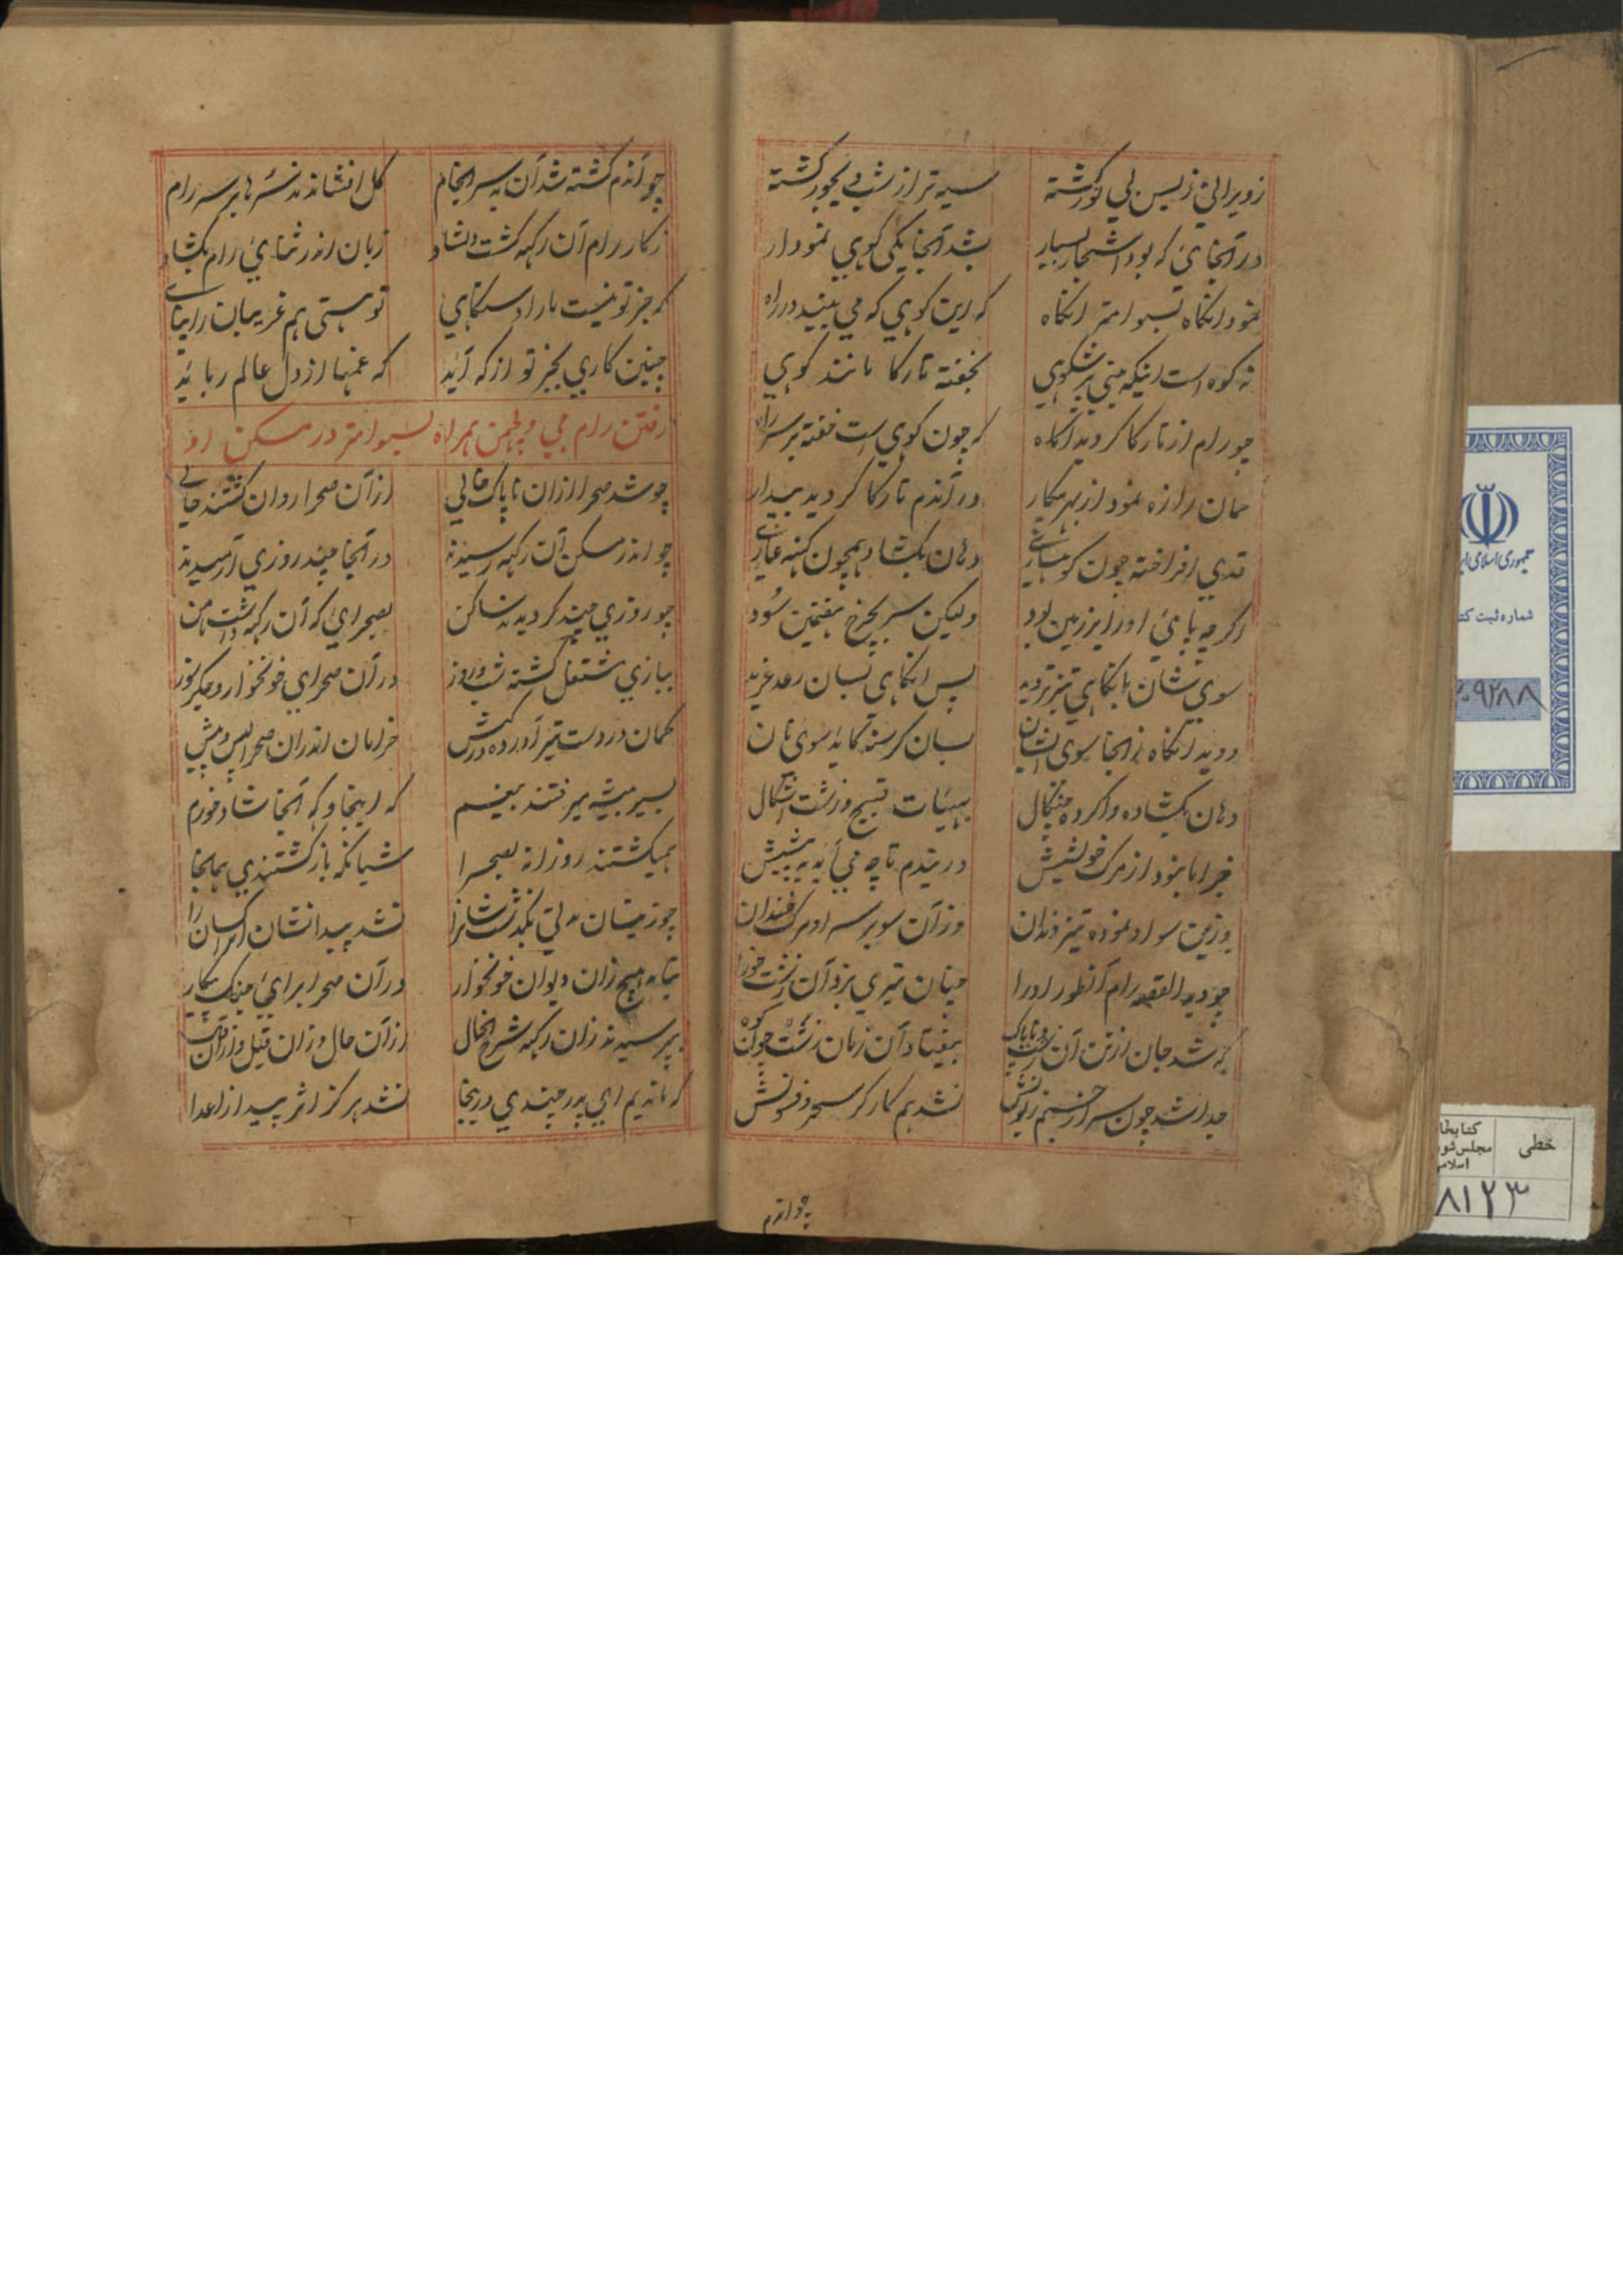 زویرانی زبس بی نور گشته سیه تر از شب دیجور گشته
در آنجائی که بود اشجار بسیار شد آنجا یکی کوهی نمودار
نمود انگاه بسوامتر انگاه که این کوهی که می بینید در راه
نه کوه است اینکه بینی پر شکوهی بخفته تارکا مانند کوهی
چو رام از تارکا گردید آگاه که چون کوهی است خفته بر سر راه
همان را زه نمود از بهر پیکار در آندم تارکا گردید بیدار
قدی افراخته چون کوهساری دهان بکشاد همچون کهنه غاری
اگرچه پای او را بر زمین بود ولیکن سر بچرخ هفتمین سود
سوی شان بانگاهی تیز تر دید پس انگاهی بسان رعد غرید
دوید انگاه زانجا سوی ایشان بسان گرسنه کاید سوی نان
دهان بکشاده واکرده چنگال بهیئات قبیح و زشت اشکال
خبر اما نبود از مرگ خویشش در یندم تا چه می آید به پیشش
وزین سو او نموده تیز دندان وزآن سو بر سر او مرگ خندان
چو دید القصه رام آنطور او را چنان تیری بزد آن زشت خو را
که شد جان از تن آن زشت ناپاک بیفتاد آن زمان زشت چون کوه
جدا شد چون سر از جسم زبونش نشد هم کارگر سحر و فسونش
چو آندم
چو آندم گشته شد آن بد سرانجام گل افشاندند سرها بر سر رام
ز کار رام آن رکهه گشت دلشاد زبان اندر ثنای رام بکشاد
که جز تو نیست ما را دستگاهی تو هستی هم غریبان را پناهی
چنین کاری بجز تو از که آید که غمها از دل عالم رباید
رفتن رام جی و لچمن همراه بسوامتر در مسکن او
چو شد صحرا ازان ناپاک خالی ازآن صحرا روان گشتند حالی
چو اندر مسکن آن رکهه رسیدند در آنجا چند روزی آرمیدند
چو روزی چند گردیدند ساکن بصحرائی که آن رکهه داشت مامن
ببازی مشتغل گشته شب و روز در آن صحرای خونخوار و جگر دوز
کمان در دست تیر آورده در کیش خرامان اندران صحرا پس و پیش
بسیر بیشه میرفتند بیغم که اینجا و که آنجا شاد و خرم
همیگشتند روزانه بصحرا شبانگه باز گشتندی بمانجا
چو زینسان مدتی بگذشت شانرا نشد پیدا نشان آن کسان را
نیامد هیچ زان دیوان خونخوار در آن صحرا برای جنگ و پیکار
بپرسیدند زان رکهه شرح احوال ازآن حال و زان قیل و ازان قال
که ماندیم ای پدر چندی درینجا نشد هرگز اثر پیدا ز اعدا
جمهوری اسلامی ایر
شماره ثبت کتا
۲۰۹۲۸۸
خطی
کتابخا
مجلس شور
اسلامی
۸۱۲۳